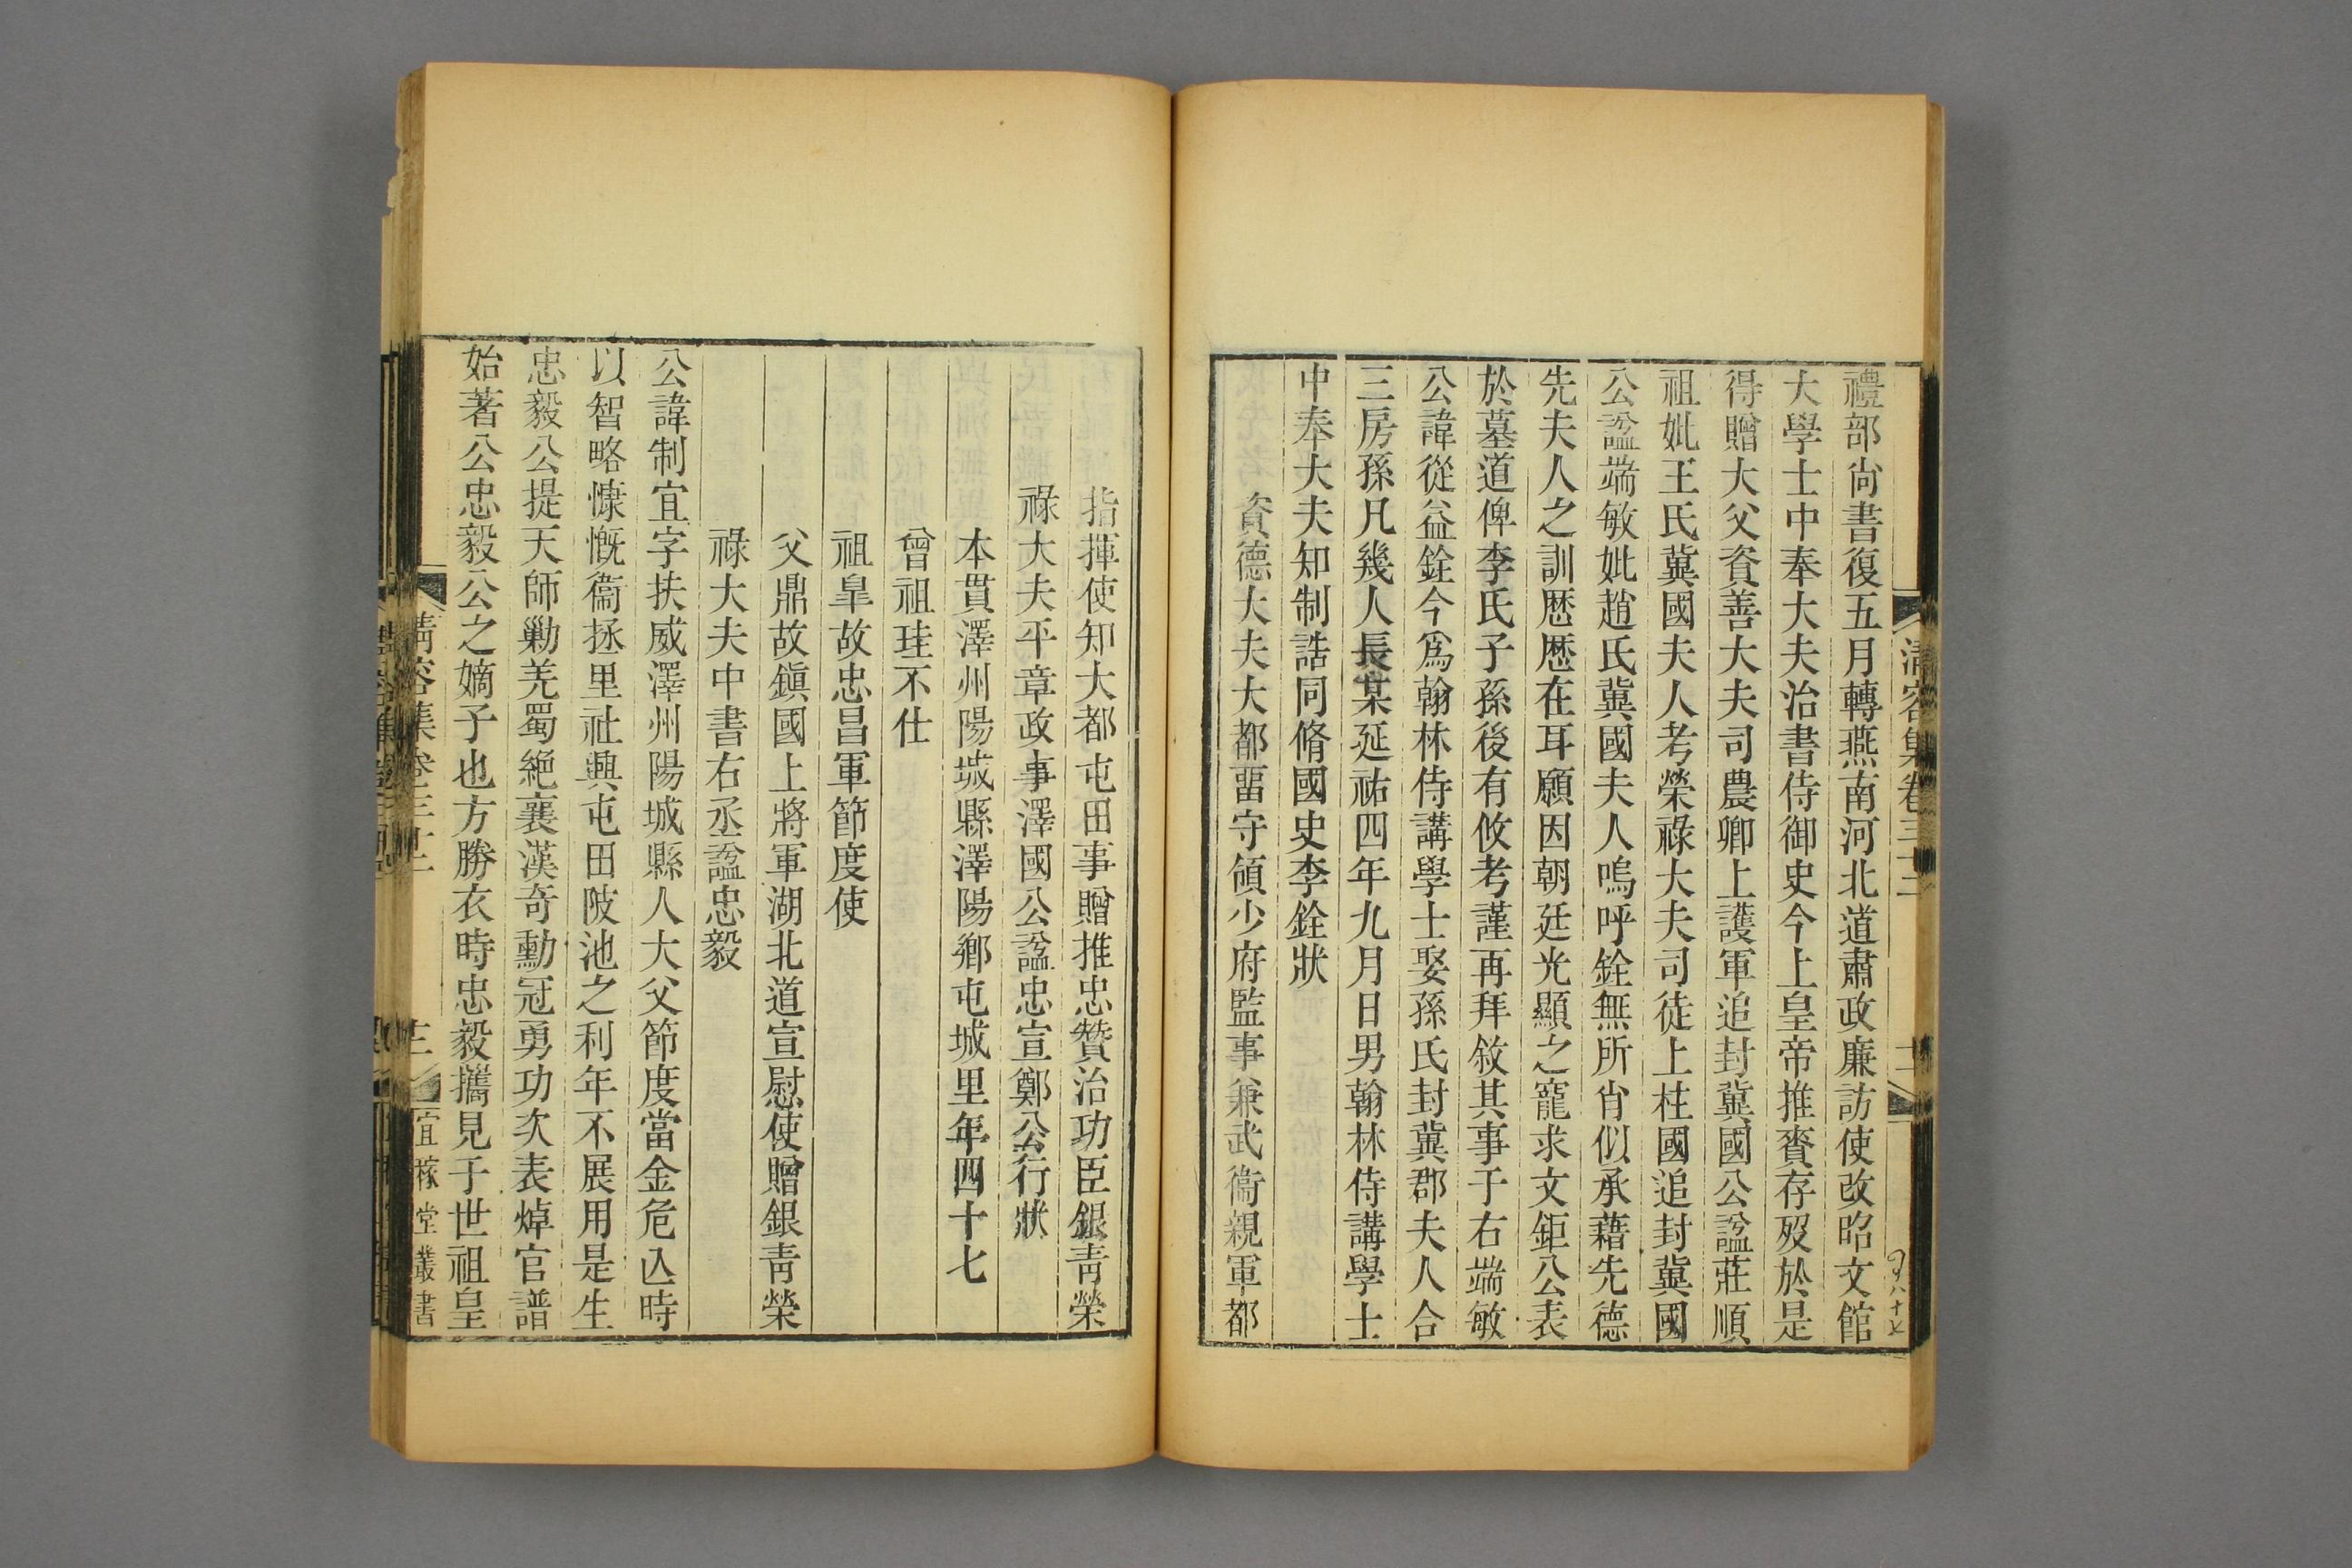 清容集卷三十二
禮部尙書復五月轉燕南河北道肅政廉訪使改昭文館
大學士中奉大夫治書侍御史今上皇帝推賚存歿於是
得贈大父資善大夫司農卿上護軍追封冀國公諡莊順
祖妣王氏冀國夫人考榮祿大夫司徒上柱國追封冀國
公諡端敏妣趙氏冀國夫人嗚呼銓無所肖似承藉先德
先夫人之訓歷歷在耳願因朝廷光顯之寵求文鉅公表
於墓道俾李氏子孫後有攸考謹再拜敘其事于右端敏
公諱從益銓今爲翰林侍講學士娶孫氏封冀郡夫人合
三房孫凡幾人長某延祐四年九月日男翰林侍講學士
中奉大夫知制誥同脩國史李銓狀
資德大夫大都畱守領少府監事兼武衞親軍都
指揮使知大都屯田事贈推忠贊治功臣銀靑榮
祿大夫平章政事澤國公諡忠宣鄭公行狀
本貫澤州陽城縣澤陽鄕屯城里年四十七
曾祖珪不仕
祖皐故忠昌軍節度使
父鼎故鎭國上將軍湖北道宣慰使贈銀靑榮
祿大夫中書右丞諡忠毅
公諱制宜字扶威澤州陽城縣人大父節度當金危亾時
以智略慷慨衞拯里社興屯田陂池之利年不展用是生
忠毅公提天師勦羌蜀絶襄漢奇勳冠勇功次表焯官譜
始著公忠毅公之嫡子也方勝衣時忠毅攜見于世祖皇
清容集卷三十二
宜稼堂叢書